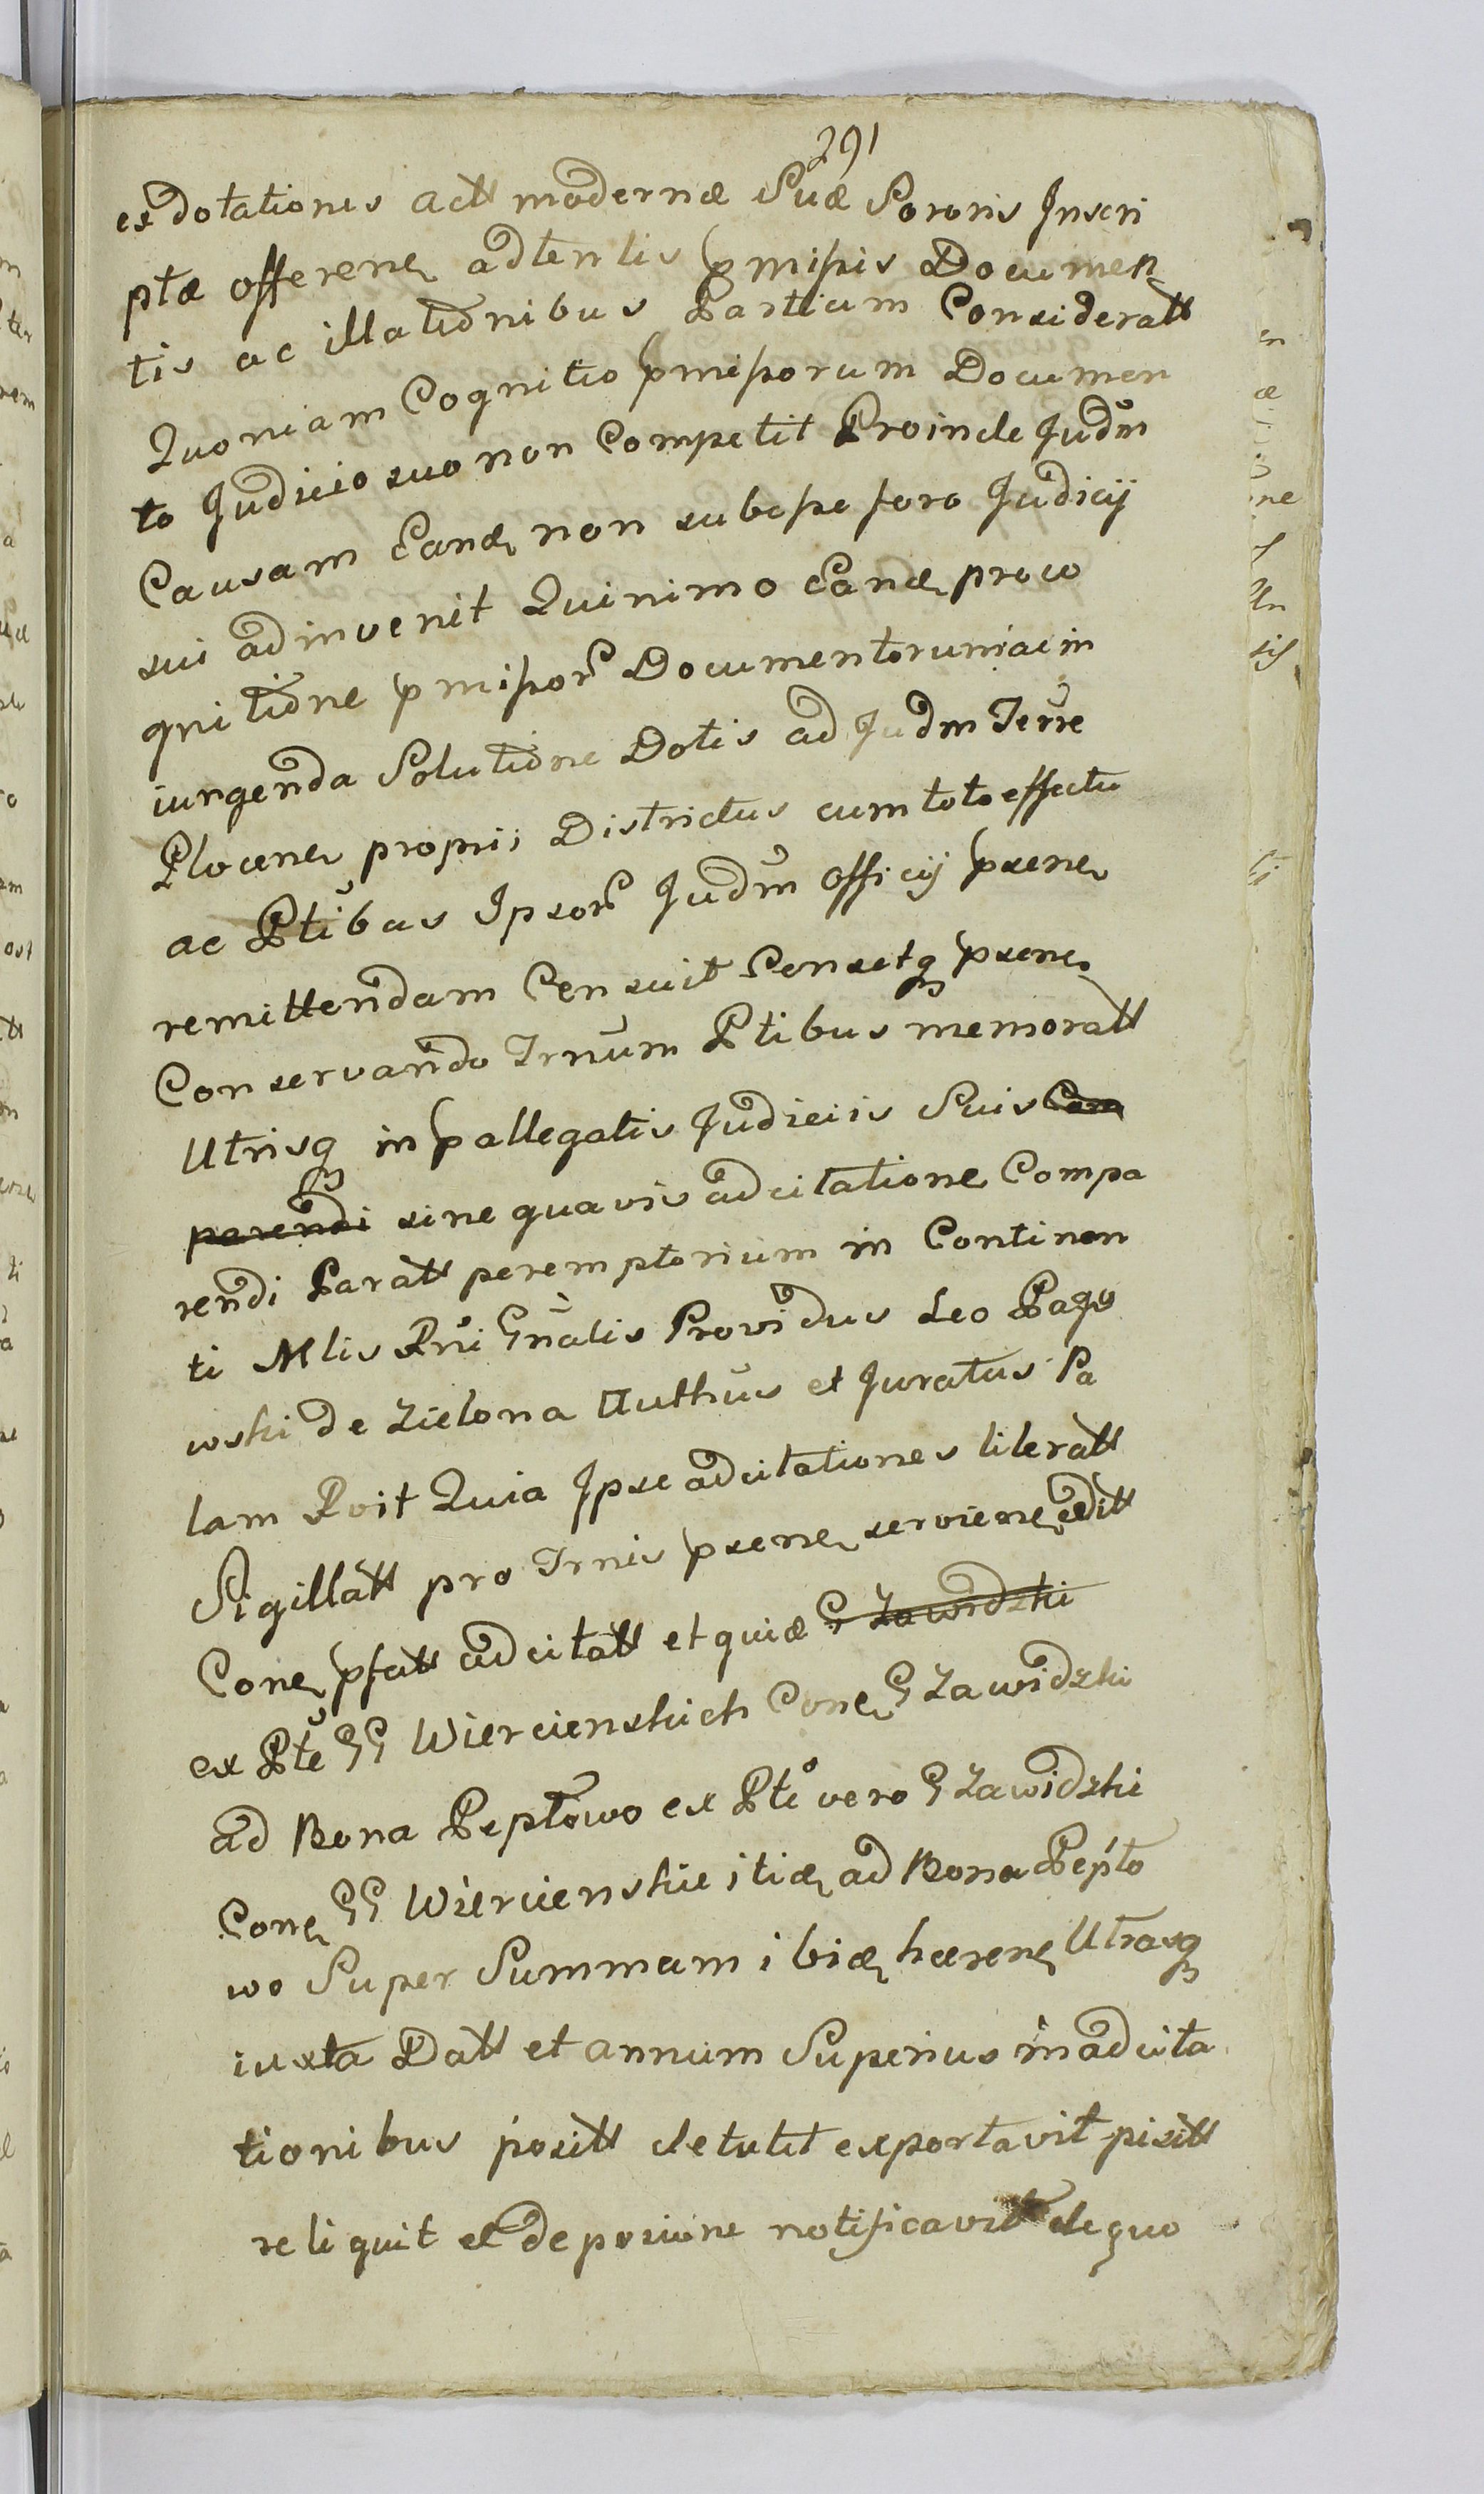 291
exdotationis actt modernæ Suæ Sororis Inscri
ptæ offeren adtentis pmissis Documen
tis ac illationibus Partium Consideratt
Quoniam Cognitio pmissorum Documen
to Judicio suo non Competit Proinde Judm
Causam Eand non subesse foro Judicij
sui adinvenit Quinimo Eand pro co
gnitione pmissor Documentorum ac in
iungenda Solutione Dotis ad Judm Terre
Plocen proprij Districtus cum toto effectu
ac Ptibus Ipsor Judm Officij psen
remittendam Censuit Censetq psen
Conservando Trnum Ptibus memoratt
Utrisq in pallegatis Judiciis Suis Com
parendi sine quavis adcitatione Compa
rendi Paratt peremptorium in Continen
ti Mlis Rni Gnalis Providus Leo Pago
wski de Zielona Authus et Juratus Pa
lam Roit Quia Ipse adcitationes literatt
Sigillatt pro Trnis psen servien edit
Con pfatt adcitatt et quid G Zawidzki
ex Pte GG Wiercienskich Con G Zawidzki
ad Bona Peptowo ex Pte vero G Zawidzki
Con GG Wiercienskie itid ad Bona Pepto
wo Super Summam ibid hæren Utrasq
iuxta Datt et annum Superius in adcita
tionibus positt detulit exportavit pisitt
reliquit et de positione notificavit de quo